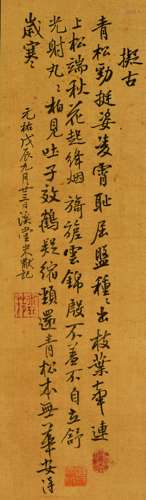 擬古
青松勁挺姿凌霄恥屈盤種〻出枝葉牽連
上松端秋花起絳烟旖旎雲錦殷不羞不自立舒
光射丸〻柏見吐子效鶴疑縮頸還青松本無華安得
歲寒
元祐戊辰九月廿三日溪堂米黻記